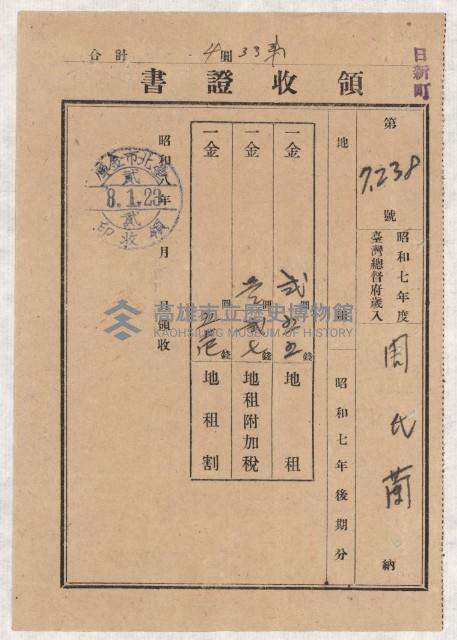 日新町
合計 4圓33錢
領收證書
第7,238號
昭和七年度
臺灣總督府歲入
周氏蘭 納
地租
昭和七年後期分
一金 貳圓 五錢 地租
一金 圓 七錢 地租附加稅
一金 圓 錢 地租割
昭和八年 月 日領收
臺北市金庫
貳
8.1.23
貳
領收印
高雄市立歷史博物館
KAOHSIUNG MUSEUM OF HISTORY